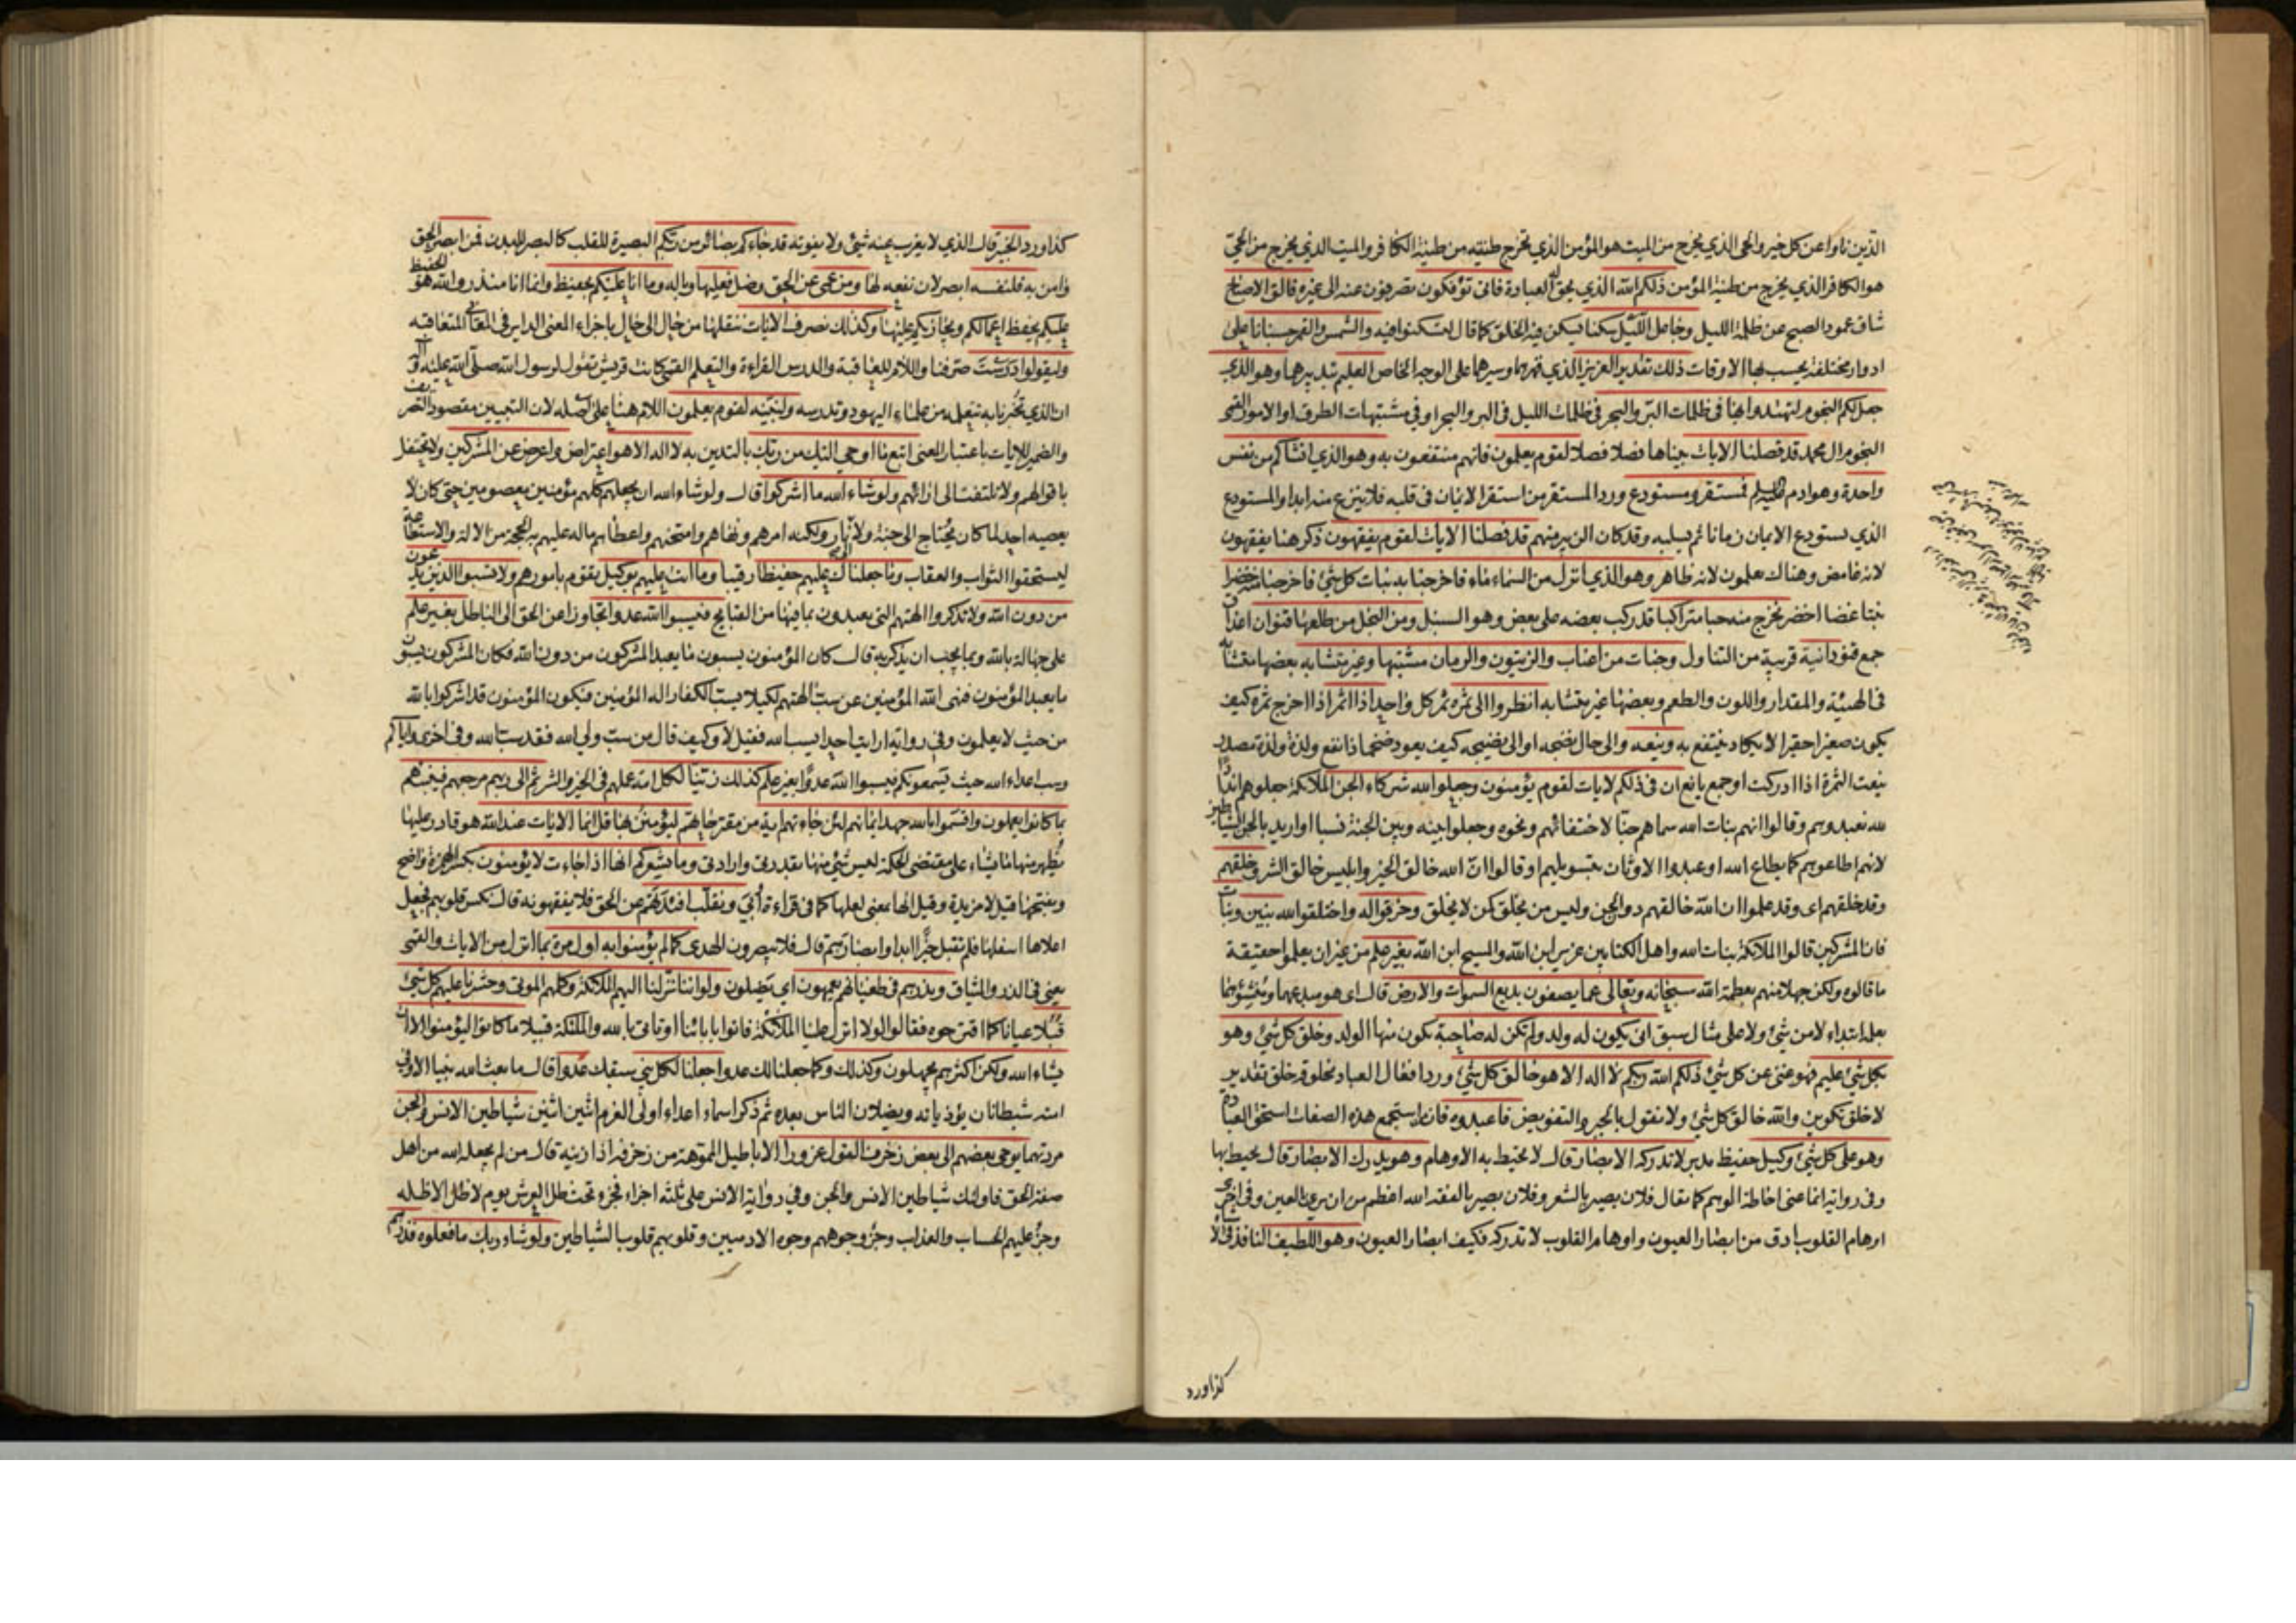 الذين ناوا عن كل خير والحي الذي يخرج من الميت هو المؤمن الذي تخرج طينته من طينة الكافر والميت الذي يخرج من الحي
هو الكافر الذي يخرج من طينة المؤمن ذلكم الله الذي يحق له العبادة فانى تؤفكون تصرفون عنه الى غيره فالق الاصباح
شاق عمود الصبح عن ظلمة الليل وجاعل الليل سكنا يسكن فيه الخلق كما قال لتسكنوا فيه والشمس والقمر حسبانا على
ادوار مختلفة يحسب بهما الاوقات ذلك تقدير العزيز الذي قهرهما وسيرهما على الوجه الخاص العليم بتدبيرهما وهو الذي
جعل لكم النجوم لتهتدوا بها في ظلمات البر والبحر في ظلمات الليل في البر والبحر او في مشتبهات الطرق او الامور القمي
النجوم ال محمد قد فصلنا الايات بيناها فصلا فصلا لقوم يعلمون فانهم منتفعون به وهو الذي انشاكم من نفس
واحدة وهو ادم عليه السلم فمستقر ومستودع ورد المستقر من استقر الايمان في قلبه فلا ينزع منه ابدا والمستودع
الذي يستودع الايمان زمانا ثم يسلبه وقد كان الزبير منهم قد فصلنا الايات لقوم يفقهون ذكر هنا يفقهون
لانه غامض وهناك يعلمون لانه ظاهر وهو الذي انزل من السماء ماء فاخرجنا به نبات كل شئ فاخرجنا منه خضرا
نبتا غضا اخضر نخرج منه حبا متراكبا قد ركب بعضه على بعض وهو السنبل ومن النخل من طلعها قنوان اعذاق
جمع قنو دانية قريبة من التناول وجنات من اعناب والزيتون والرمان مشتبها وغير متشابه بعضها متشابه
في الهيئة والمقدار واللون والطعم وبعضها غير متشابه انظروا الى ثمره ثمر كل واحد اذا اثمر اذا اخرج ثمره كيف
يكون صغيرا حقيرا لا يكاد ينتفع به وينعه والى حال نضجه او الى نضيجه كيف يعود ضخما ذا نفع ولذة مصدر
ينعت الثمرة اذا ادركت او جمع يانع ان في ذلكم لايات لقوم يؤمنون وجعلوا لله شركاء الجن الملائكة جعلوهم اندادا
لله نعبدوهم وقالوا انهم بنات الله سماهم جنا لاختفائهم ونحوه وجعلوا بينه وبين الجنة نسبا او اريد بالجن الشياطين
لانهم اطاعوهم كما يطاع الله او عبدوا الاوثان بتسويلهم او قالوا ان الله خالق الخير وابليس خالق الشر وخلقهم
وقد خلقهم اي وقد علموا ان الله خالقهم دون الجن وليس من يخلق كمن لا يخلق وخرقوا له واختلقوا لله بنين وبنات
فان المشركين قالوا الملائكة بنات الله واهل الكتابين عزير ابن الله والمسيح ابن الله بغير علم من غير ان يعلموا حقيقة
ما قالوه ولكن جهلا منهم بعظمة الله سبحانه وتعالى عما يصفون بديع السموات والارض قال اي هو مبدعهما ومنشؤهما
بعلمه ابتداء لا من شئ ولا على مثال سبق انى يكون له ولد ولم تكن له صاحبة يكون منها الولد وخلق كل شئ وهو
بكل شئ عليم فهو غني عن كل شئ ذلكم الله ربكم لا اله الا هو خالق كل شئ ورد افعال العباد مخلوقة خلق تقدير
لا خلق تكوين والله خالق كل شئ ولا نقول بالجبر والتفويض فاعبدوه فان استجمع هذه الصفات استحق العبادة
وهو على كل شئ وكيل حفيظ مدبر لا تدركه الابصار قال لا تحيط به الاوهام وهو يدرك الابصار قال يحيط بها
وفي رواية انما عنى احاطة الوهم كما يقال فلان بصير بالشعر وفلان بصير بالفقه الله اعظم من ان يرى بالعين وفي اخرى
اوهام القلوب ادق من ابصار العيون واوهام القلوب لا تدركه فكيف ابصار العيون وهو اللطيف النافذ في الا
كذا ورد
كذا ورد الخبير قال الذي لا يعزب عنه شئ ولا يفوته قد جاءكم بصائر من ربكم البصيرة للقلب كالبصر للبدن فمن ابصر الحق
وامن به فلنفسه ابصر لان نفعه لها ومن عمي عن الحق وضل فعليها وباله وما انا عليكم بحفيظ وانما انا منذر والله هو الحفيظ
عليكم يحفظ اعمالكم ويجازيكم عليها وكذلك نصرف الايات ننقلها من حال الى حال باجراء المعنى الداير في المعاني المتعاقبة
وليقولوا درست صرفنا واللام للعاقبة والدرس القراءة والتعلم القمي كانت قريش تقول لرسول الله صلى الله عليه واله
ان الذي تخبرنا به تتعلمه من علماء اليهود وتدرسه ولنبينه لقوم يعلمون اللام هنا على اصله لان التبيين مقصود التصريف
والضمير للايات باعتبار المعنى اتبع ما اوحي اليك من ربك بالتدين به لا اله الا هو اعتراض واعرض عن المشركين ولا تحتفل
باقوالهم ولا تلتفت الى ارائهم ولو شاء الله ما اشركوا قال ولو شاء الله ان يجعلهم كلهم مؤمنين معصومين حتى كان لا
يعصيه احد لما كان يحتاج الى جنة ولا نار ولكنه امرهم ونهاهم وامتحنهم واعطاهم ماله عليهم به الحجة من الالة والاستطاعة
ليستحقوا الثواب والعقاب وما جعلناك عليهم حفيظا رقيبا وما انت عليهم بوكيل يقوم بامورهم ولا تسبوا الذين يدعون
من دون الله ولا تذكروا الهتهم التي يعبدون بما فيها من القبايح فيسبوا الله عدوا تجاوزا عن الحق الى الباطل بغير علم
على جهالة بالله وبما يجب ان يذكر به قال كان المؤمنون يسبون ما يعبد المشركون من دون الله فكان المشركون يسبون
ما يعبد المؤمنون فنهى الله المؤمنين عن سب الهتهم لكيلا يسب الكفار اله المؤمنين فيكون المؤمنون قد اشركوا بالله
من حيث لا يعلمون وفي رواية ارايت احدا يسب الله فقيل لا وكيف قال من سب ولي الله فقد سب الله وفي اخرى واياكم
وسب اعداء الله حيث يسمعونكم فيسبوا الله عدوا بغير علم كذلك زينا لكل امة عملهم في الخير والشر ثم الى ربهم مرجعهم فينبئهم
بما كانوا يعملون واقسموا بالله جهد ايمانهم لئن جاءتهم اية من مقترحاتهم ليؤمنن بها قل انما الايات عند الله هو قادر عليها
يظهر منها ما يشاء على مقتضى الحكمة ليس شئ منها بقدرتي وارادتي وما يشعركم انها اذا جاءت لا يؤمنون بكسر الهمزة واضح
وبفتحها قيل لا مزيدة وقيل انها بمعنى لعلها كما في قراءة ابي ونقلب افئدتهم عن الحق فلا يفقهونه قال نكس قلوبهم فيجعل
اعلاها اسفلها فلم تقبل خيرا ابدا وابصارهم قال فلا يبصرون الهدى كما لم يؤمنوا به اول مرة بما انزل من الايات والقمي
يعني في الذر والميثاق ونذرهم في طغيانهم يعمهون اي يضلون ولو اننا نزلنا اليهم الملائكة وكلمهم الموتى وحشرنا عليهم كل شئ
قبلا عيانا كما اقترحوه فقالوا لولا انزل علينا الملائكة فاتوا بابائنا او تاتي بالله والملئكة قبيلا ما كانوا ليؤمنوا الا ان
يشاء الله ولكن اكثرهم يجهلون وكذلك وكما جعلنا لك عدوا جعلنا لكل نبي سبقك عدوا قال ما بعث الله نبيا الا وفي
امته شيطانان يؤذيانه ويضلان الناس بعده ثم ذكر اسماء اعداء اولي العزم اثنين اثنين شياطين الانس والجن
مردتهما يوحي بعضهم الى بعض زخرف القول غرورا الاباطيل المموهة من زخرفه اذا زينه قال من لم يجعله الله من اهل
صفة الحق فاولئك شياطين الانس والجن وفي رواية الانس على ثلثة اجزاء فجزء تحت ظل العرش يوم لا ظل الا ظله
وجزء عليهم الحساب والعذاب وجزء وجوههم وجوه الادميين وقلوبهم قلوب الشياطين ولو شاء ربك ما فعلوه فذرهم